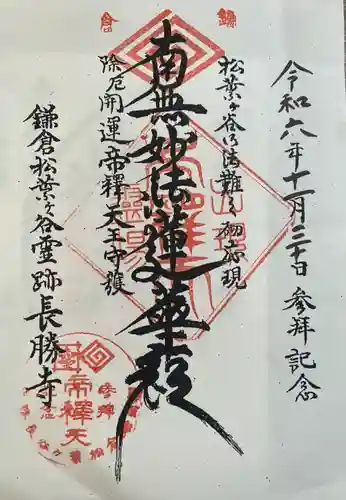 令和六年十一月三十日 参拝記念
松葉ヶ谷御法難之砌応現
南無妙法蓮華経
除厄開運帝釋天王守護
鎌倉松葉ヶ谷霊跡長勝寺
鎌
倉
帝釋天
参拝
記念